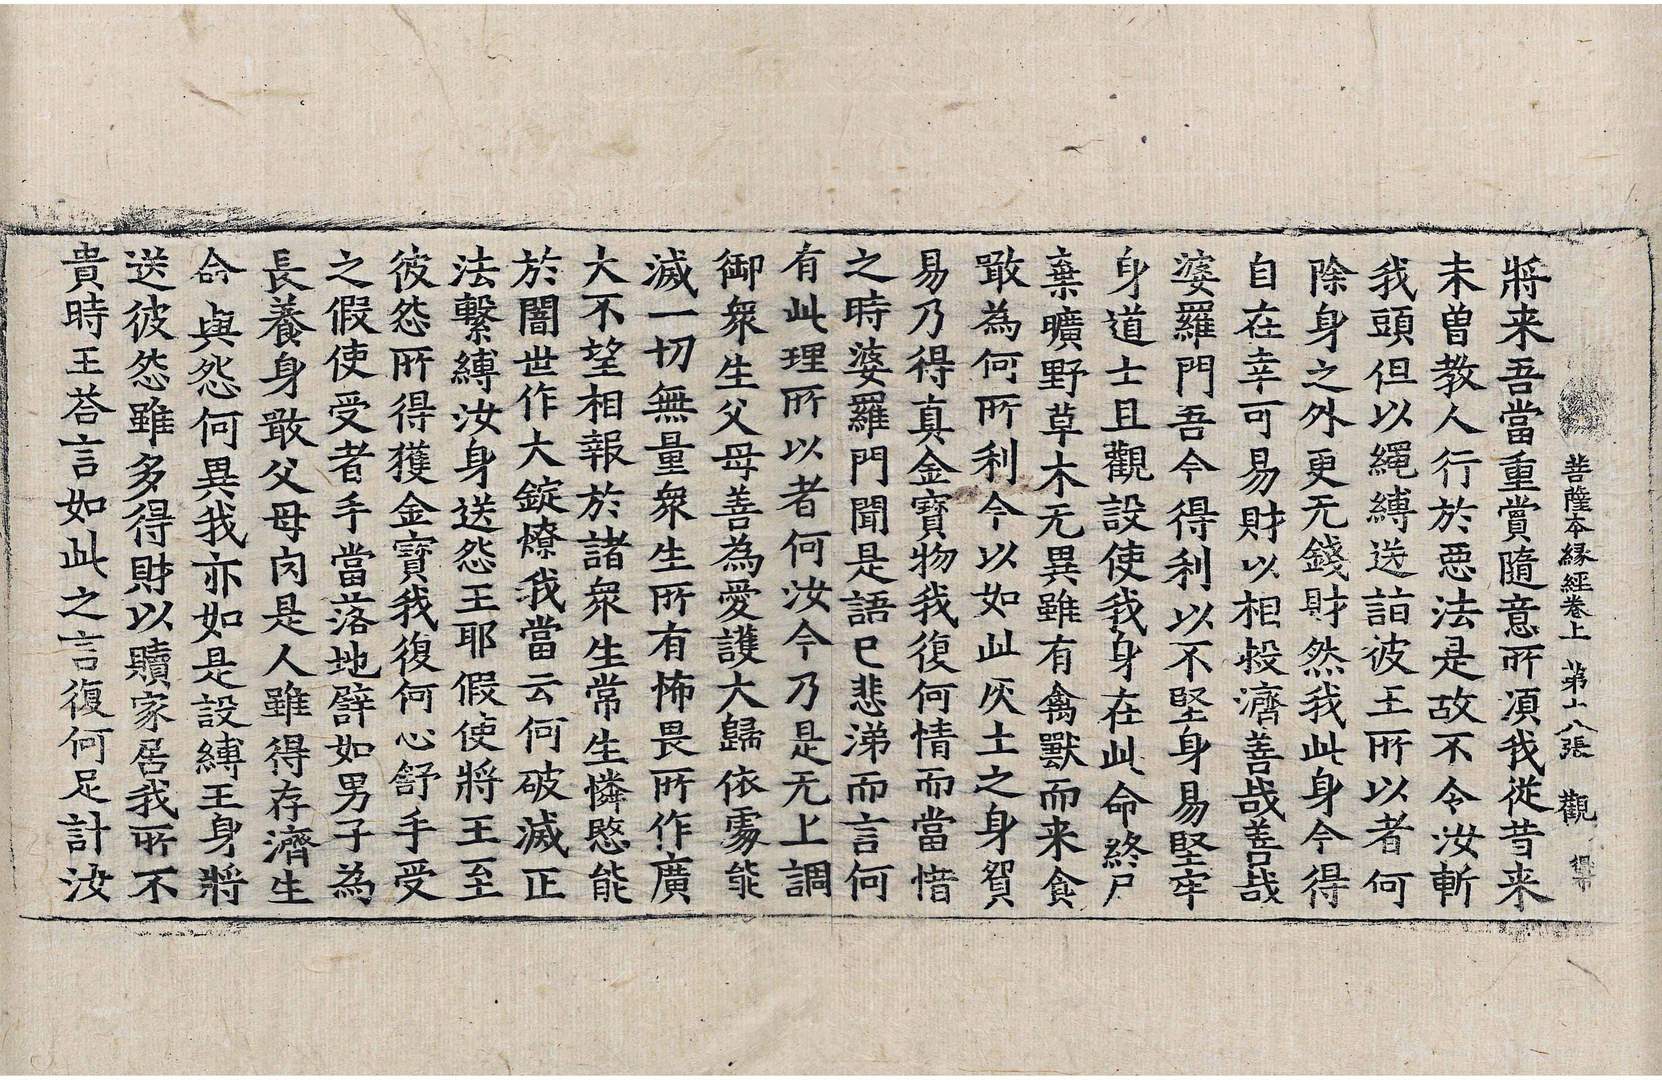 菩薩本緣經卷上 第十八張 觀
將来吾當重賞隨意所湏我従昔来
未曾教人行於惡法是故不令汝斬
我頭但以繩縛送詣彼王所以者何
除身之外更无錢財然我此身今得
自在幸可易財以相投濟善哉善哉
婆羅門吾今得利以不堅身易堅牢
身道士且觀設使我身在此命終尸
棄曠野草木无異雖有禽獸而来食
噉為何所利今以如此灰土之身貿
易乃得真金寶物我復何情而當惜
之時婆羅門聞是語已悲涕而言何
有此理所以者何汝今乃是无上調
御衆生父母善為愛護大歸依處能
滅一切無量衆生所有怖畏所作廣
大不望相報於諸衆生常生憐愍能
於闇世作大錠燎我當云何破滅正
法繫縛汝身送怨王耶假使將王至
彼怨所得獲金寶我復何心舒手受
之假使受者手當落地譬如男子為
長養身敢父母肉是人雖得存濟生
命與怨何異我亦如是設縛王身將
送彼怨雖多得財以贖家居我所不
貴時王荅言如此之言復何足計汝